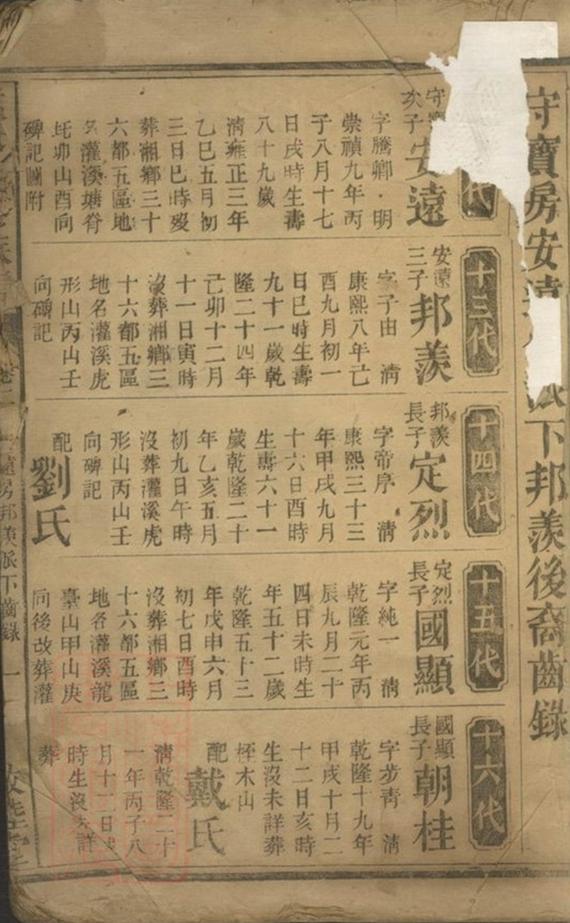 守寶房安遠
派下邦羨後裔齒錄
代
守寶
次子
安遠
字騰卿·明
崇禎九年丙
子八月十七
日戌時生壽
八十九歲
淸雍正三年
乙巳五月初
三日巳時歿
葬湘鄉三十
六都五區地
名灌溪塘脊
圫卯山酉向
碑記圖附
十三代
安遠
三子
邦羨
字子由 淸
康熙八年己
酉九月初一
日巳時生壽
九十一歲乾
隆二十四年
己卯十二月
十一日寅時
沒葬湘鄉三
十六都五區
地名灌溪虎
形山丙山壬
向碑記
十四代
邦羨
長子
定烈
字帝序 淸
康熙三十三
年甲戌九月
十六日酉時
生壽六十一
歲乾隆二十
年乙亥五月
初九日午時
沒葬灌溪虎
形山丙山壬
向碑記
配
劉氏
十五代
定烈
長子
國顯
字純一 淸
乾隆元年丙
辰九月二十
四日未時生
年五十二歲
乾隆五十三
年戊申六月
初七日酉時
沒葬湘鄉三
十六都五區
地名灌溪龍
臺山甲山庚
向後改葬灌
十六代
國顯
長子
朝桂
字步靑 淸
乾隆十九年
甲戌十月二
十二日亥時
生沒未詳葬
桎木山
配
戴氏
淸乾隆二十
一年丙子八
月十二日
時生沒未詳
葬
遠房邦羨派下齒錄 一